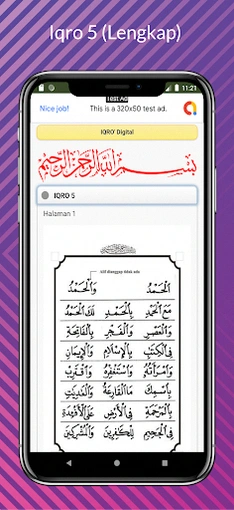 Iqro 5 (Lengkap)
11:21
Test Ad
Nice job!
This is a 320x50 test ad.
IQRO' Digital
بسم الله الرحمن الرحيم
IQRO 5
Halaman 1
Alif dianggap tidak ada
اَلْحَمْدُ وَالْحَمْدُ
مَعَ الْحَمْدِ بِالْحَمْدِ لَكَ الْحَمْدُ
وَالْعَصْرِ وَالْفَجْرِ بِالْفَاتِحَةِ
فِى الْكِتٰبِ بِالْاِسْلَامِ وَالْاِيْمَانِ
وَامْرَاَتُهُ وَاسْتَغْفِرْهُ وَاقْتَرِبْ
بِاسْمِكَ مَا الْقَارِعَةُ وَالْعٰدِيٰتِ
بِالْمَرْحَمَةِ فِى الْاَرْضِ عَلَى الْاَفْئِدَةِ
فِى الْجَحِيْمِ لِلْكٰفِرِيْنَ وَالْمُشْرِكِيْنَ